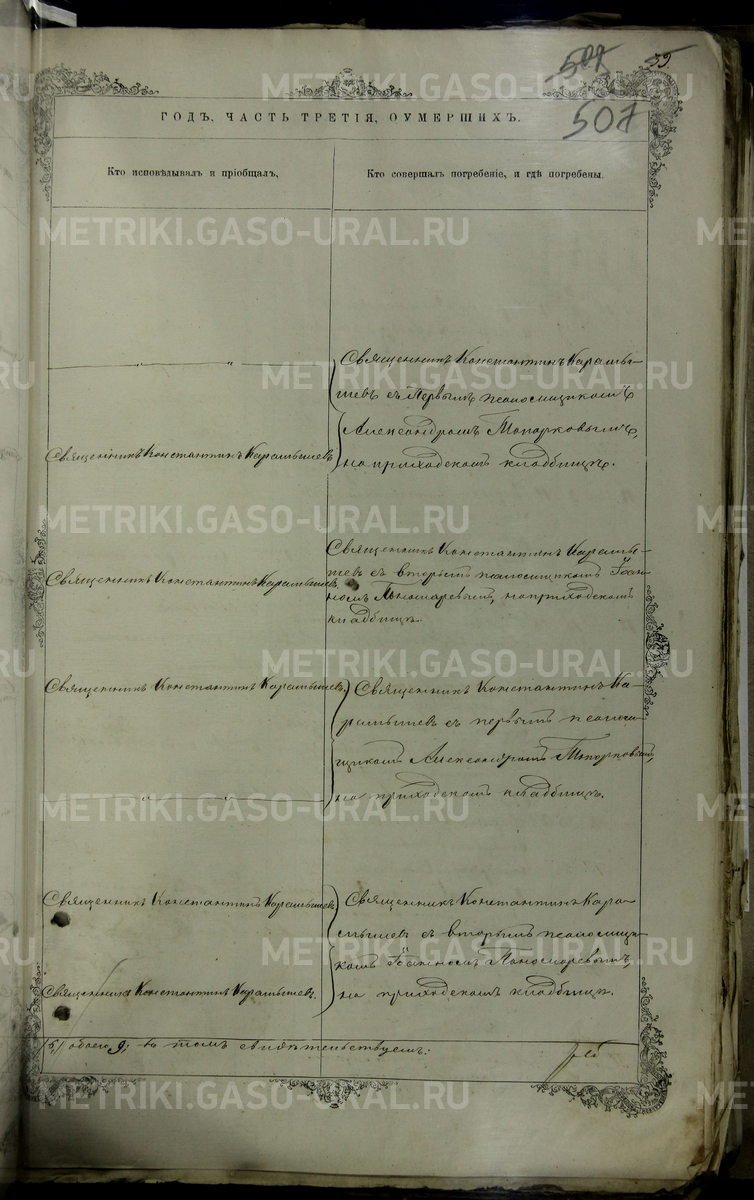 507
55.
507
ГОДЪ, ЧАСТЬ ТРЕТІЯ, О УМЕРШИХЪ.
Кто исповѣдывалъ и пріобщалъ,
Кто совершалъ погребеніе, и гдѣ погребены.
" "
Священникъ Константинъ Карамы-
шевъ съ первымъ псаломщикомъ
Александромъ Топорковымъ,
на приходскомъ кладбищѣ.
Священникъ Константинъ Карамышевъ
Священникъ Константинъ Карамышевъ
Священникъ Константинъ Карамы-
шевъ съ вторымъ псаломщикомъ Іоан-
номъ Пономаревымъ, на приходскомъ
кладбищѣ.
Священникъ Константинъ Карамышевъ.
Священникъ Константинъ Ка-
рамышевъ съ первымъ псалом-
щикомъ Александромъ Топорковымъ,
на приходскомъ кладбищѣ.
" "
Священникъ Константинъ Карамышевъ
Священникъ Константинъ Кара-
мышевъ съ вторымъ псаломщи-
комъ Іоанномъ Пономаревымъ,
на приходскомъ кладбищѣ.
Священникъ Константинъ Карамышевъ.
обоего 9; въ томъ свидѣтельствуемъ:
METRIKI.GASO-URAL.RU